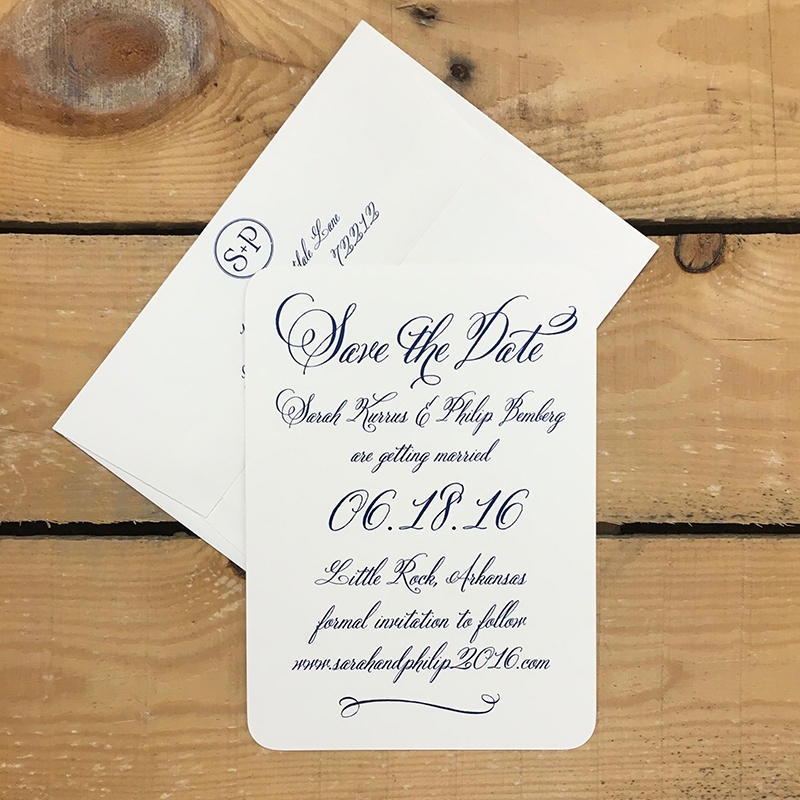 S+P
Lane
72212
Save the Date
Sarah Kurrus & Philip Bemberg
are getting married
06.18.16
Little Rock, Arkansas
formal invitation to follow
www.sarahandphilip2016.com